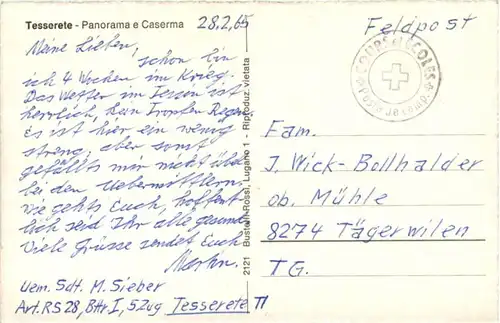 Tesserete - Panorama e Caserma
28.2.65
Meine Lieben,
schon bin
ich 4 Wochen im Krieg.
Das Wetter im Tessin ist
herrlich, kein Tropfen Regen.
Es ist hier ein wenig
streng, aber sonst
gefällts mir nicht übel
bei den Uebermittlern.
Wie gehts Euch, hoffent-
lich seid Ihr alle gesund.
Viele Grüsse sendet Euch
Martin.
Uem. Sdt. M. Sieber
Art. RS 28, Bttr I, 5 Zug Tesserete TI
2121 Busetti-Rossi, Lugano 1 - Riproduz. vietata
Feldpost
COURS ECOLES
Poste de camp.
Fam.
J. Wick-Bollhalder
ob. Mühle
8274 Tägerwilen
TG.